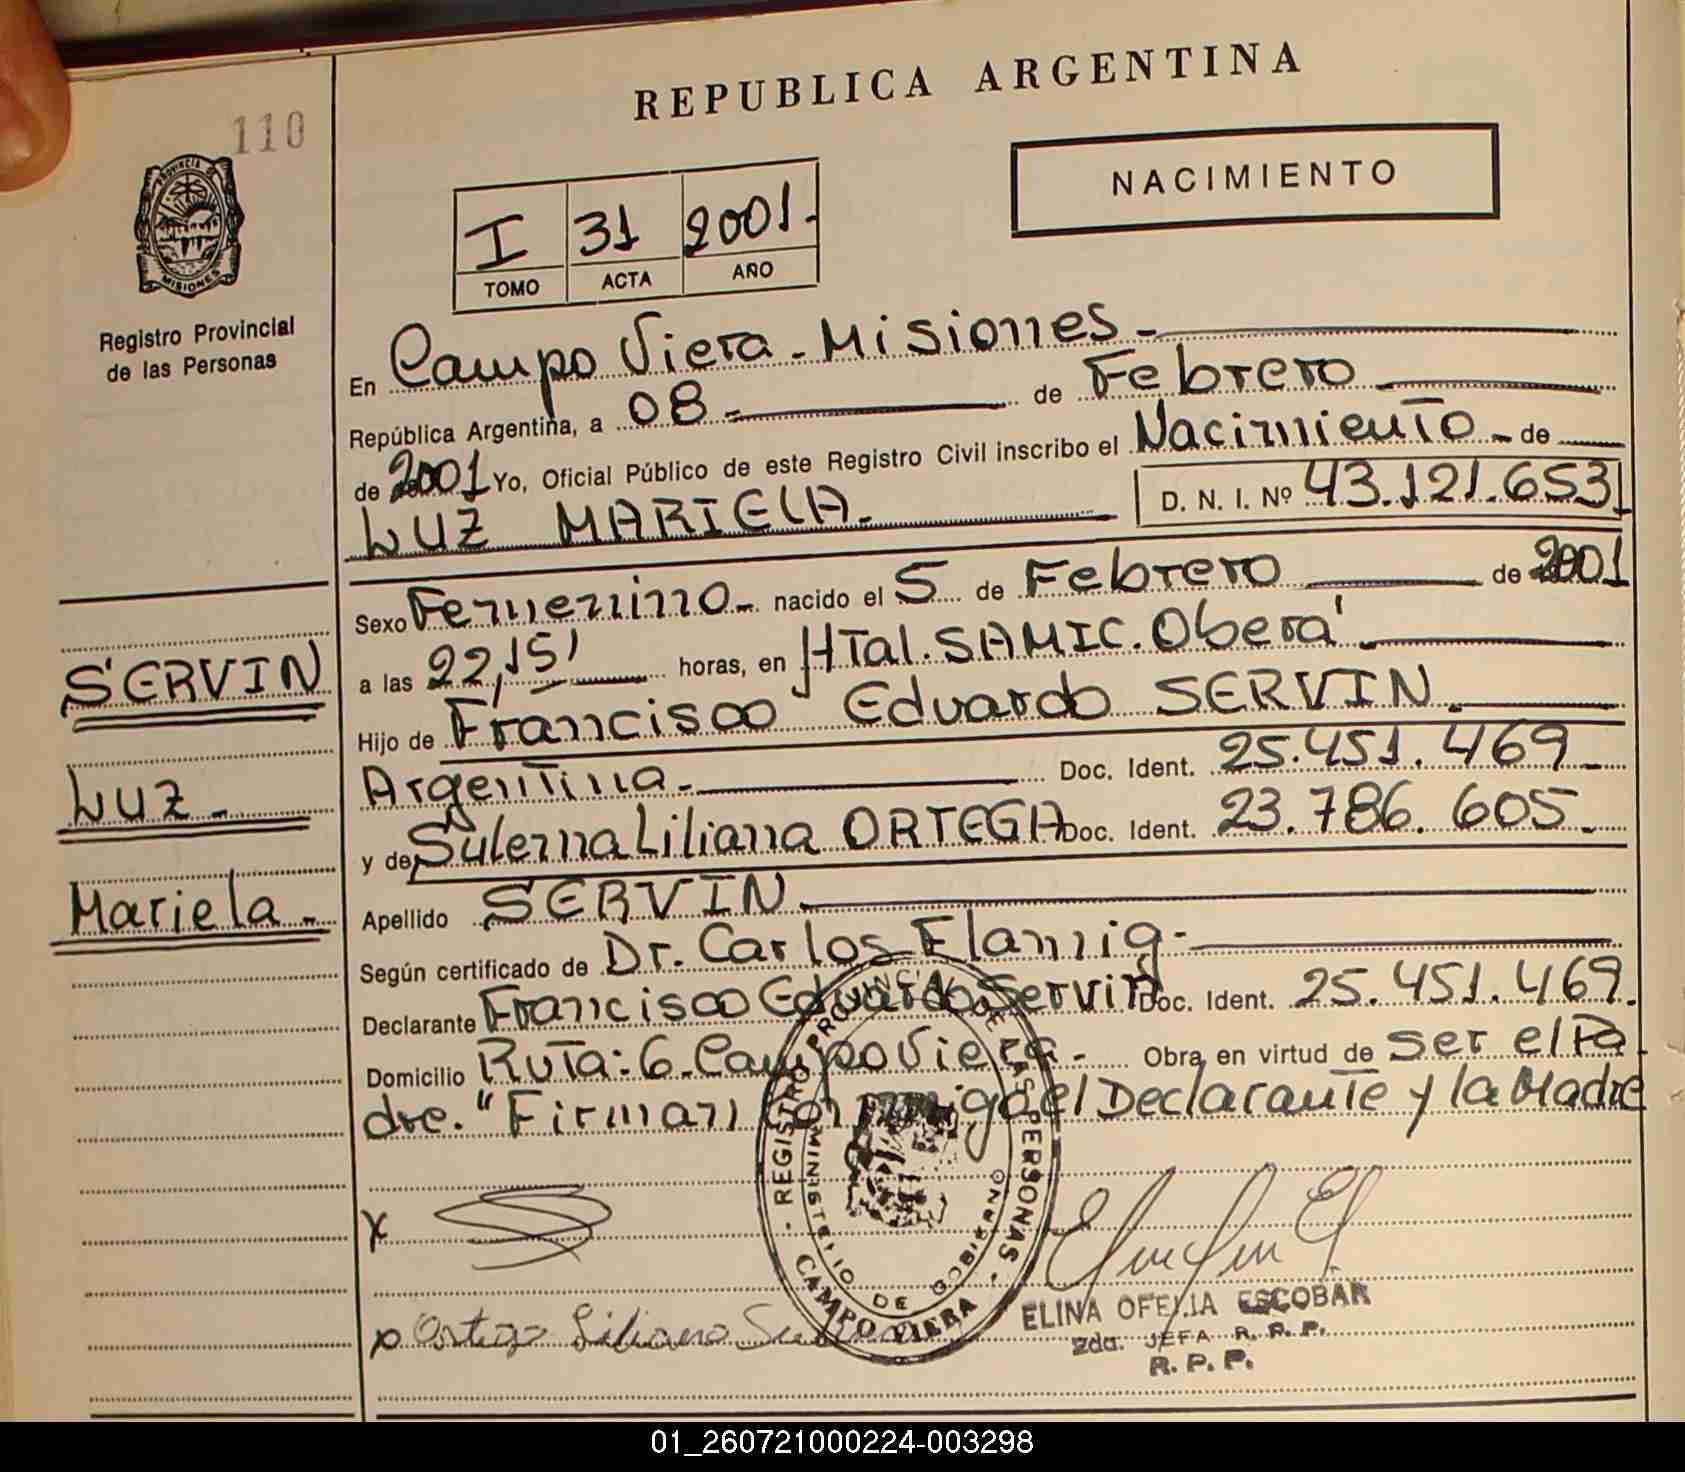 REPUBLICA ARGENTINA
110
NACIMIENTO
PROVINCIA DE
MISIONES
I 31 2001.
TOMO ACTA AÑO
Registro Provincial
de las Personas
En Campo Viera - Misiones -
República Argentina, a 08 - de Febrero -
de 2001 Yo, Oficial Público de este Registro Civil inscribo el Nacimiento - de
LUZ MARIELA - D. N. I. Nº 43.121.653
Sexo Femenino - nacido el 5 de Febrero de 2001
a las 22,15' horas, en HTal. SAMIC. Oberá -
Hijo de Francisco Eduardo SERVIN -
Argentina - Doc. Ident. 25.451.469 -
y de Sulema Liliana ORTEGA Doc. Ident. 23.786.605 -
Apellido SERVIN -
Según certificado de Dr. Carlos Flannig -
Declarante Francisco Eduardo Servin Doc. Ident. 25.451.469.
Domicilio Ruta: 6. Campo Viera - Obra en virtud de ser el Pa
dre. "Firman conmigo el Declarante y la Madre
SERVIN
Luz -
Mariela -
x
REGISTRO PROVINCIAL DE LAS PERSONAS -
MINISTERIO DE GOBIERNO
CAMPO VIERA
Ortega Liliana
ELINA OFELIA ESCOBAR
2da. JEFA R. P. P.
R. P. P.
01_260721000224-003298